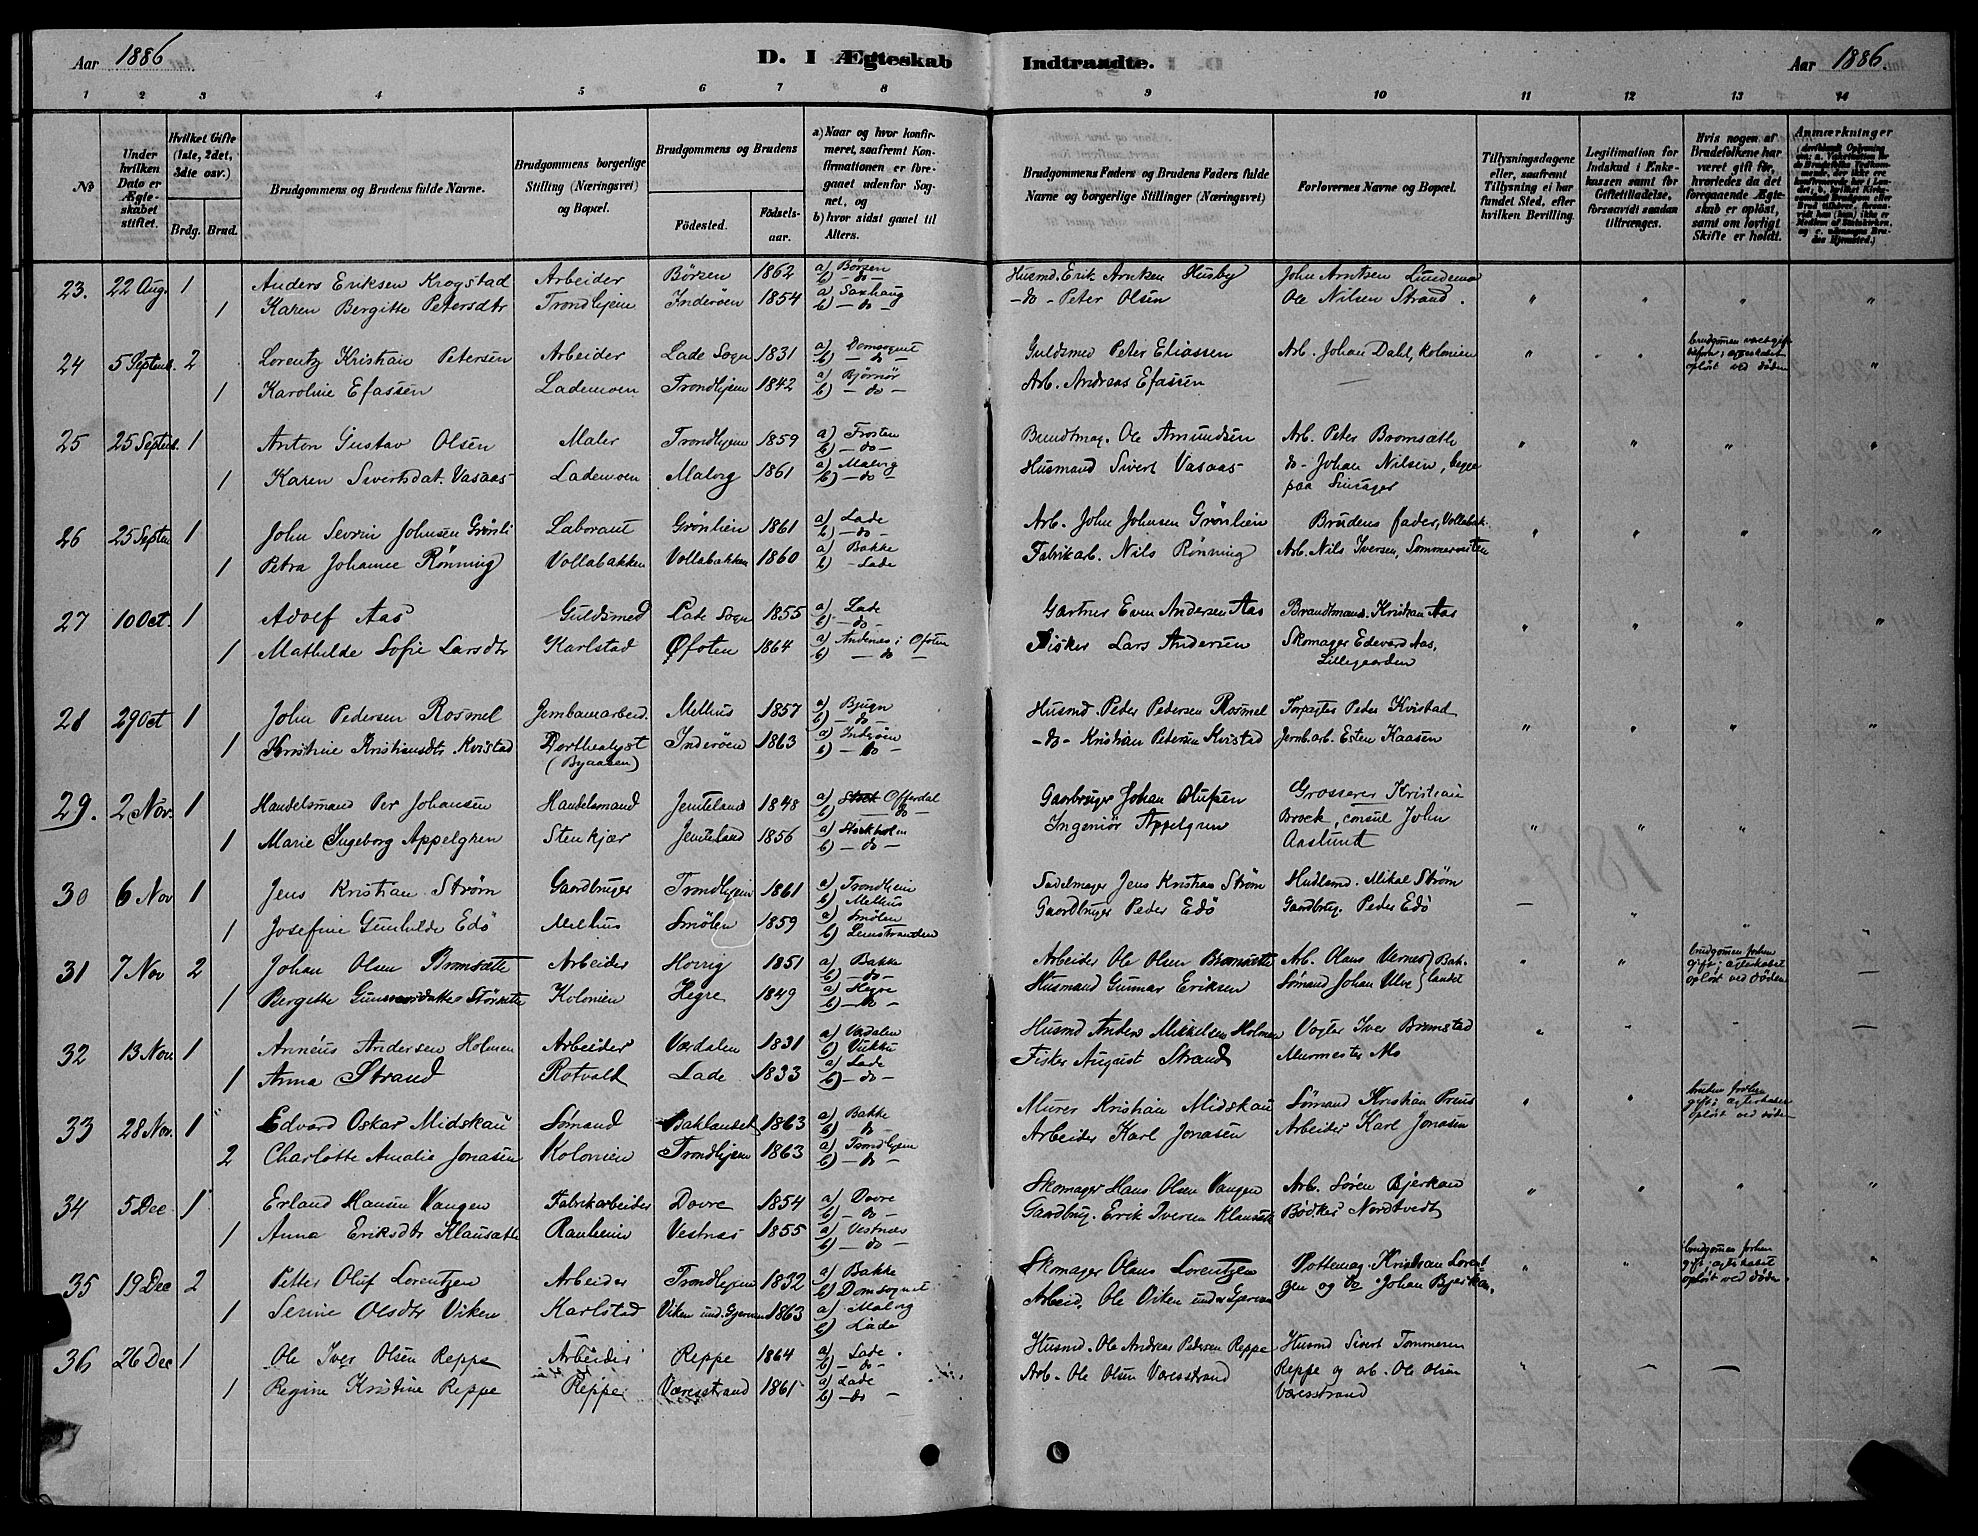 Aar 1886
D. I Ægteskab Indtraadte.
Aar 1886.
1 2 3 4 5 6 7 8 9 10 11 12 13 14
№
Under hvilken Dato er Ægteskabet stiftet.
Hvilket Gifte (1ste, 2det, 3die osv.)
Brdg. Brud.
Brudgommens og Brudens fulde Navne.
Brudgommens borgerlige Stilling (Næringsvei) og Bopæl.
Brudgommens og Brudens
Fødested. Fødselsaar.
a) Naar og hvor konfirmeret, saafremt Konfirmationen er foregaaet udenfor Sognet, og
b) hvor sidst gaaet til Alters.
Brudgommens Faders og Brudens Faders fulde Navne og borgerlige Stillinger (Næringsvei)
Forlovernes Navne og Bopæl.
Tillysningsdagene eller, saafremt Tillysning ei har fundet Sted, efter hvilken Bevilling.
Legitimation for Indskud i Enkekassen samt for Giftetilladelse, forsaavidt saadan tiltrænges.
Hvis nogen af Brudefolkene har været gift før, hvorledes da det foregaaende Ægteskab er opløst, samt om lovligt Skifte er holdt.
Anmærkninger
23. 22 Aug. 1 Anders Eriksen Krogstad Arbeider Börsen 1862 a) Börsen b) - do - Husmd. Erik Arntsen Husby John Arntsen Lundemo
1 Karen Bergitte Petersdtr Trondhjem Inderöen 1854 a) Saxhaug b) - do - - do - Peter Olsen Ole Nilsen Strand.
24 5 Septmb. 2 Lorentz Kristian Petersen Arbeider Lade Sogn 1831 a) Domsognet b) - do - Guldsmed Peter Eliassen Arb. Johan Dahl, Kolonien
1 Karoline Efassen Lademoen Trondhjem 1842 a) Bjørnör b) - do - Arb. Andreas Efassen —
25 25 Septmb. 1 Anton Gustav Olsen Maler Trondhjem 1859 a) Frosten b) - do - Bundtmag. Ole Amundsen Arb. Peter Bromsæth
1 Karen Sivertsdat. Vasaas Lademoen Malvig 1861 a) Malvig b) - do - Husmand Sivert Vasaas do- Johan Nilsen, begge paa
26 25 Septm 1 John Sevrin Johnsen Grønli Laborant Grønlien 1861 a) Lade b) - do - Arb. John Johnsen Grønlien Brudens fader, Vollabak.
1 Petra Johanne Rønning Vollabakken Vollabakken 1860 a) Bakke b) - Lade Fabrikarb. Nils Rønning Arb. Nils Iversen,
27 10 Oct. 1 Adolf Aas Guldsmed Lade Sogn 1855 a) Lade b) - do - Gartner Even Andersen Aas Brandtmand. Kristian Aas
1 Mathilde Sofie Larsdtr Karlstad Øfoten 1864 a) Andenes i Ofoten b) - do - Fisker Lars Andersen Skomager Edevard Aas, Lillegaarden
28 29 Oct 1 John Pedersen Rosmel Jernbanearbeid. Melhus 1857 a) Bjugn b) - do - Husmd. Peder Pedersen Rosmel Peder Kvistad
1 Kristine Kristiansdtr Kvistad Dorthealyst (Byaasen) Inderöen 1863 a) Inderöen b) - do - - do - Kristian Petersen Kvistad Jernb.arb. Esten Kaasen
29. 2 Nov. 1 Handelsmand Per Johansen Handelsmand Jemteland 1848 a) Offerdal b) - do - Gaardbruger Johan Olufsen Grosserer Kristian
1 Marie Ingeborg Appelgren Stenkjær Jemteland 1856 a) Stockholm b) - do - Ingeniør Appelgren Brock, consul John Aaslund
30 6 Nov 1 Jens Kristian Strøm Gaardbruger Trondhjem 1861 a) Trondhjem b) Melhus Sadelmager Jens Kristian Strøm Mikal Strøm
1 Josefine Gunhilde Edö Melhus Smölen 1859 a) Smölen b) Leinstranden Gaardbruger Peder Edö Gaardbrug. Peder Edö
31 7 Nov 2 Johan Olsen Bromsætte Arbeider Horrig 1851 a) Bakke b) - do - Arbeider Ole Olsen Bromsætte Arb. Olaus Vernes } Bak-
1 Bergitte Kolonien Hegre 1849 a) Hegre b) - do - Husmand Gunnar Eriksen Sømand Johan Ulve } landet
32 13 Nov. 1 Anneus Andersen Holmen Arbeider Værdalen 1831 a) Værdalen b) Vukku Husmd Anders Mikkelsen Holmen Vogter Iver Bromstad
1 Anna Strand Rotvold Lade 1833 a) Lade b) - do - Fisker August Strand Murmester Mo
33 28 Nov. 1 Edvard Oskar Midskau Sømand Baklandet 1863 a) Bakke b) - do - Murer Kristian Midskau Sømand Kristian Preus
2 Charlotte Amalie Jonasen Kolonien Trondhjem 1863 a) Trondhjem b) - do - Arbeider Karl Jonasen Arbeider Karl Jonasen
34 5 Dec 1 Erland Hansen Vangen Fabrikarbeider Dovre 1854 a) Dovre b) - do - Skomager Hans Olsen Vangen Arb. Sören Bjerkan
1 Anna Eriksdtr Klausæth Ranheim Vestnæs 1855 a) Vestnæs b) - do - Gaardbrug. Erik Iversen Klausæth Bödker Nordtvedt
35 19 Dec 2 Petter Oluf Lorentzen Arbeider Trondhjem 1832 a) Bakke b) Domsognet Skomager Olaus Lorentzen Pottemag. Kristian Lorent
1 Serine Olsdtr Viken Karlstad Viken und. Gjervan 1863 a) Malvig b) Lade Arbeid. Ole Viken under Gjervan zen og do Johan Bjerkan.
36 26 Dec 1 Ole Iver Olsen Reppe Arbeider Reppe 1864 a) Lade b) - do - Husmd. Ole Andreas Pedersen Reppe Husmd Sivert Tommesen
1 Regine Kristine Reppe Reppe Væresstrand 1861 a) Lade b) - do - Arb. Ole Olsen Væresstrand Reppe og arb. Ole Olsen Væresstrand
brudgomen været gift opløst ved døden
brudgomen forhen gift; ægteskabet opløst ved døden
bruden forhen gift; ægteskabet opløst ved døden
brudgomen forhen gift, ægteskabet opløst ved døden.